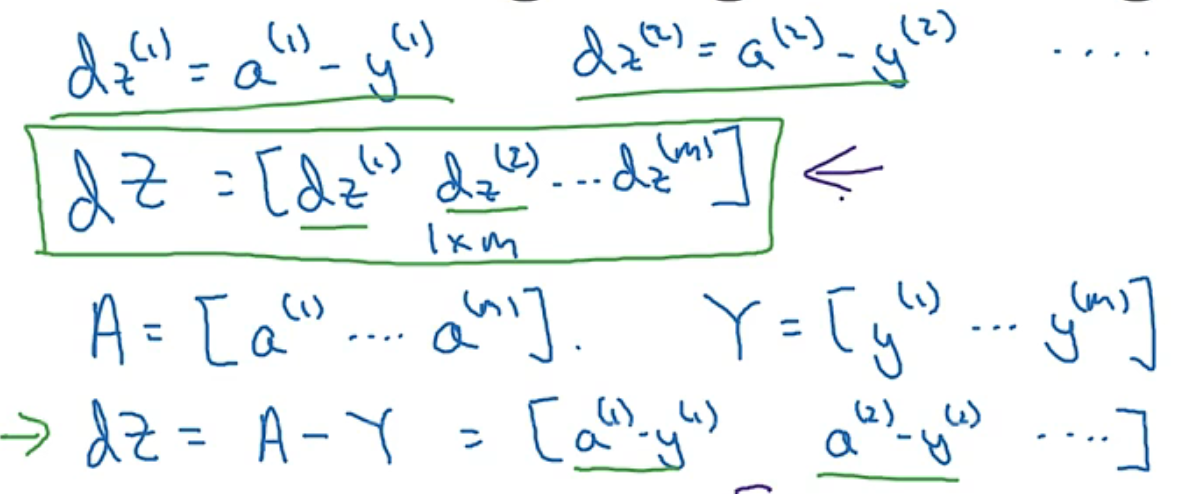 dz⁽¹⁾ = a⁽¹⁾ - y⁽¹⁾ dz⁽²⁾ = a⁽²⁾ - y⁽²⁾ ....
dZ = [dz⁽¹⁾ dz⁽²⁾ ... dz⁽ᵐ⁾] ←
1×m
A = [a⁽¹⁾ .... a⁽ᵐ⁾]. Y = [y⁽¹⁾ ... y⁽ᵐ⁾]
→ dZ = A - Y = [a⁽¹⁾-y⁽¹⁾ a⁽²⁾-y⁽²⁾ ....]